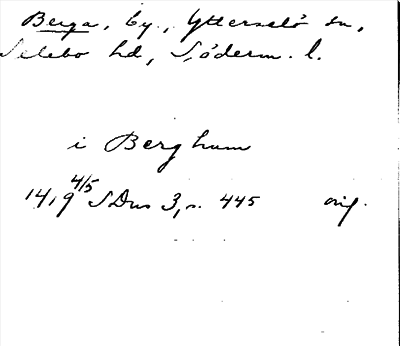 Berga, by., Ytterselö sn,
Selebo hd, Söderm. l.
i Berghum
1419 4/5 SDns 3, s. 445 orig.